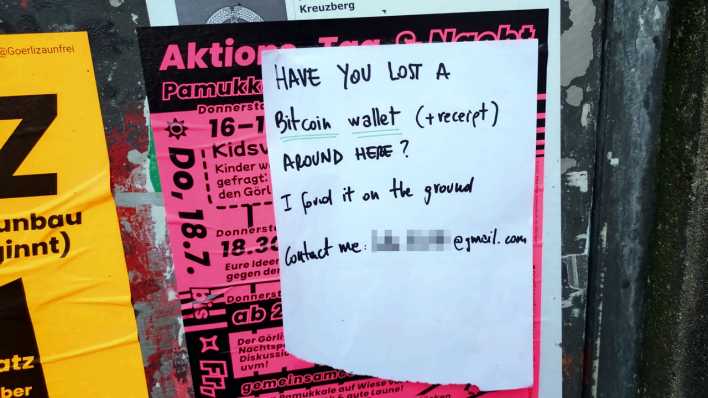 @Goerlizaunfrei
Kreuzberg
Aktions-Tag & Nacht
Pamukkale
Z
unbau
ginnt)
atz
ber
Donnerstag
16-1
Kidsv
Kinder w
gefragt:
den Görli
Do, 18.7.
18.30
Eure Ideen
gegen de
bis
Donnersta
ab 2
Der Görli
Nachtsp
Diskussion
uvm!
Fr,
gemeinsame
Pamukkale auf Wiese
gute Laune!
HAVE YOU LOST A
Bitcoin wallet (+receipt)
AROUND HERE?
I found it on the ground
Contact me: @gmail.com